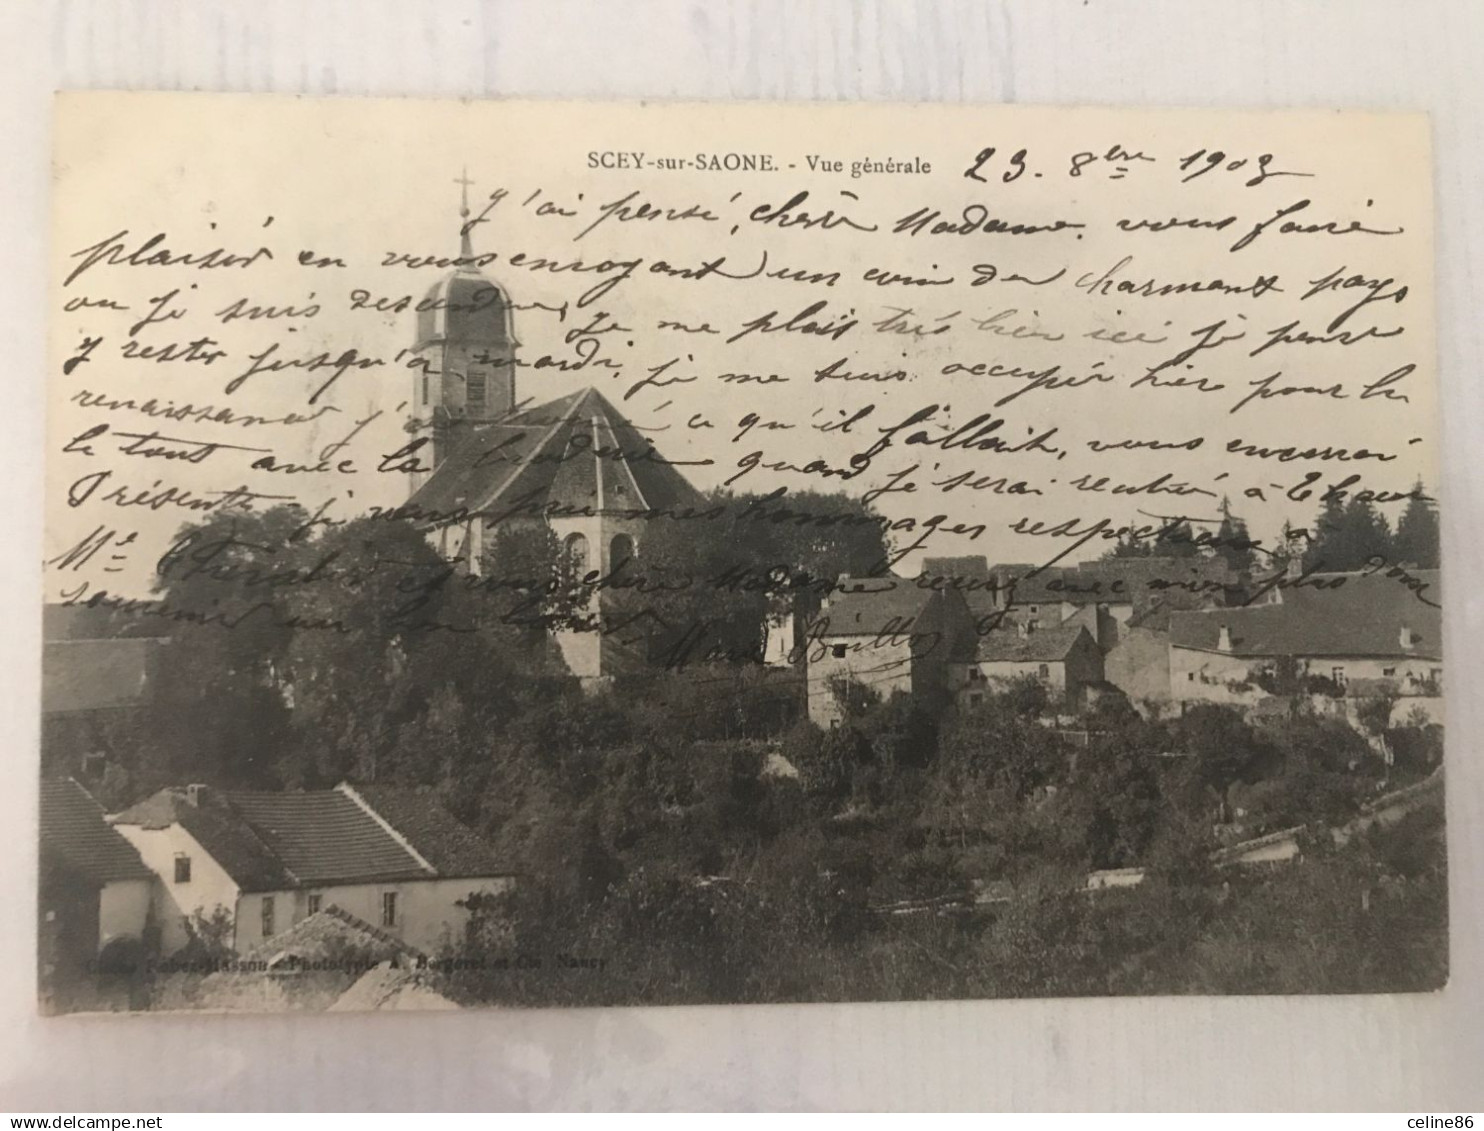 SCEY-sur-SAONE. - Vue générale 23. 8bre 1903
J'ai pensé, chère Madame, vous faire
plaisir en vous envoyant un coin du charmant pays
où je suis descendue, je me plais très bien ici je pense
y rester jusqu'à mardi, je me suis occupée hier pour la
renaissance j'ai ce qu'il fallait, vous enverrai
le tout avec la broderie quand je serai rentrée à
Présentez je vous prie mes hommages respectueux à
Mr et vous chère Madame recevez mon plus doux
souvenir un bon baiser, Marie
Phototypie A. Bergeret et Cie Nancy
celine86